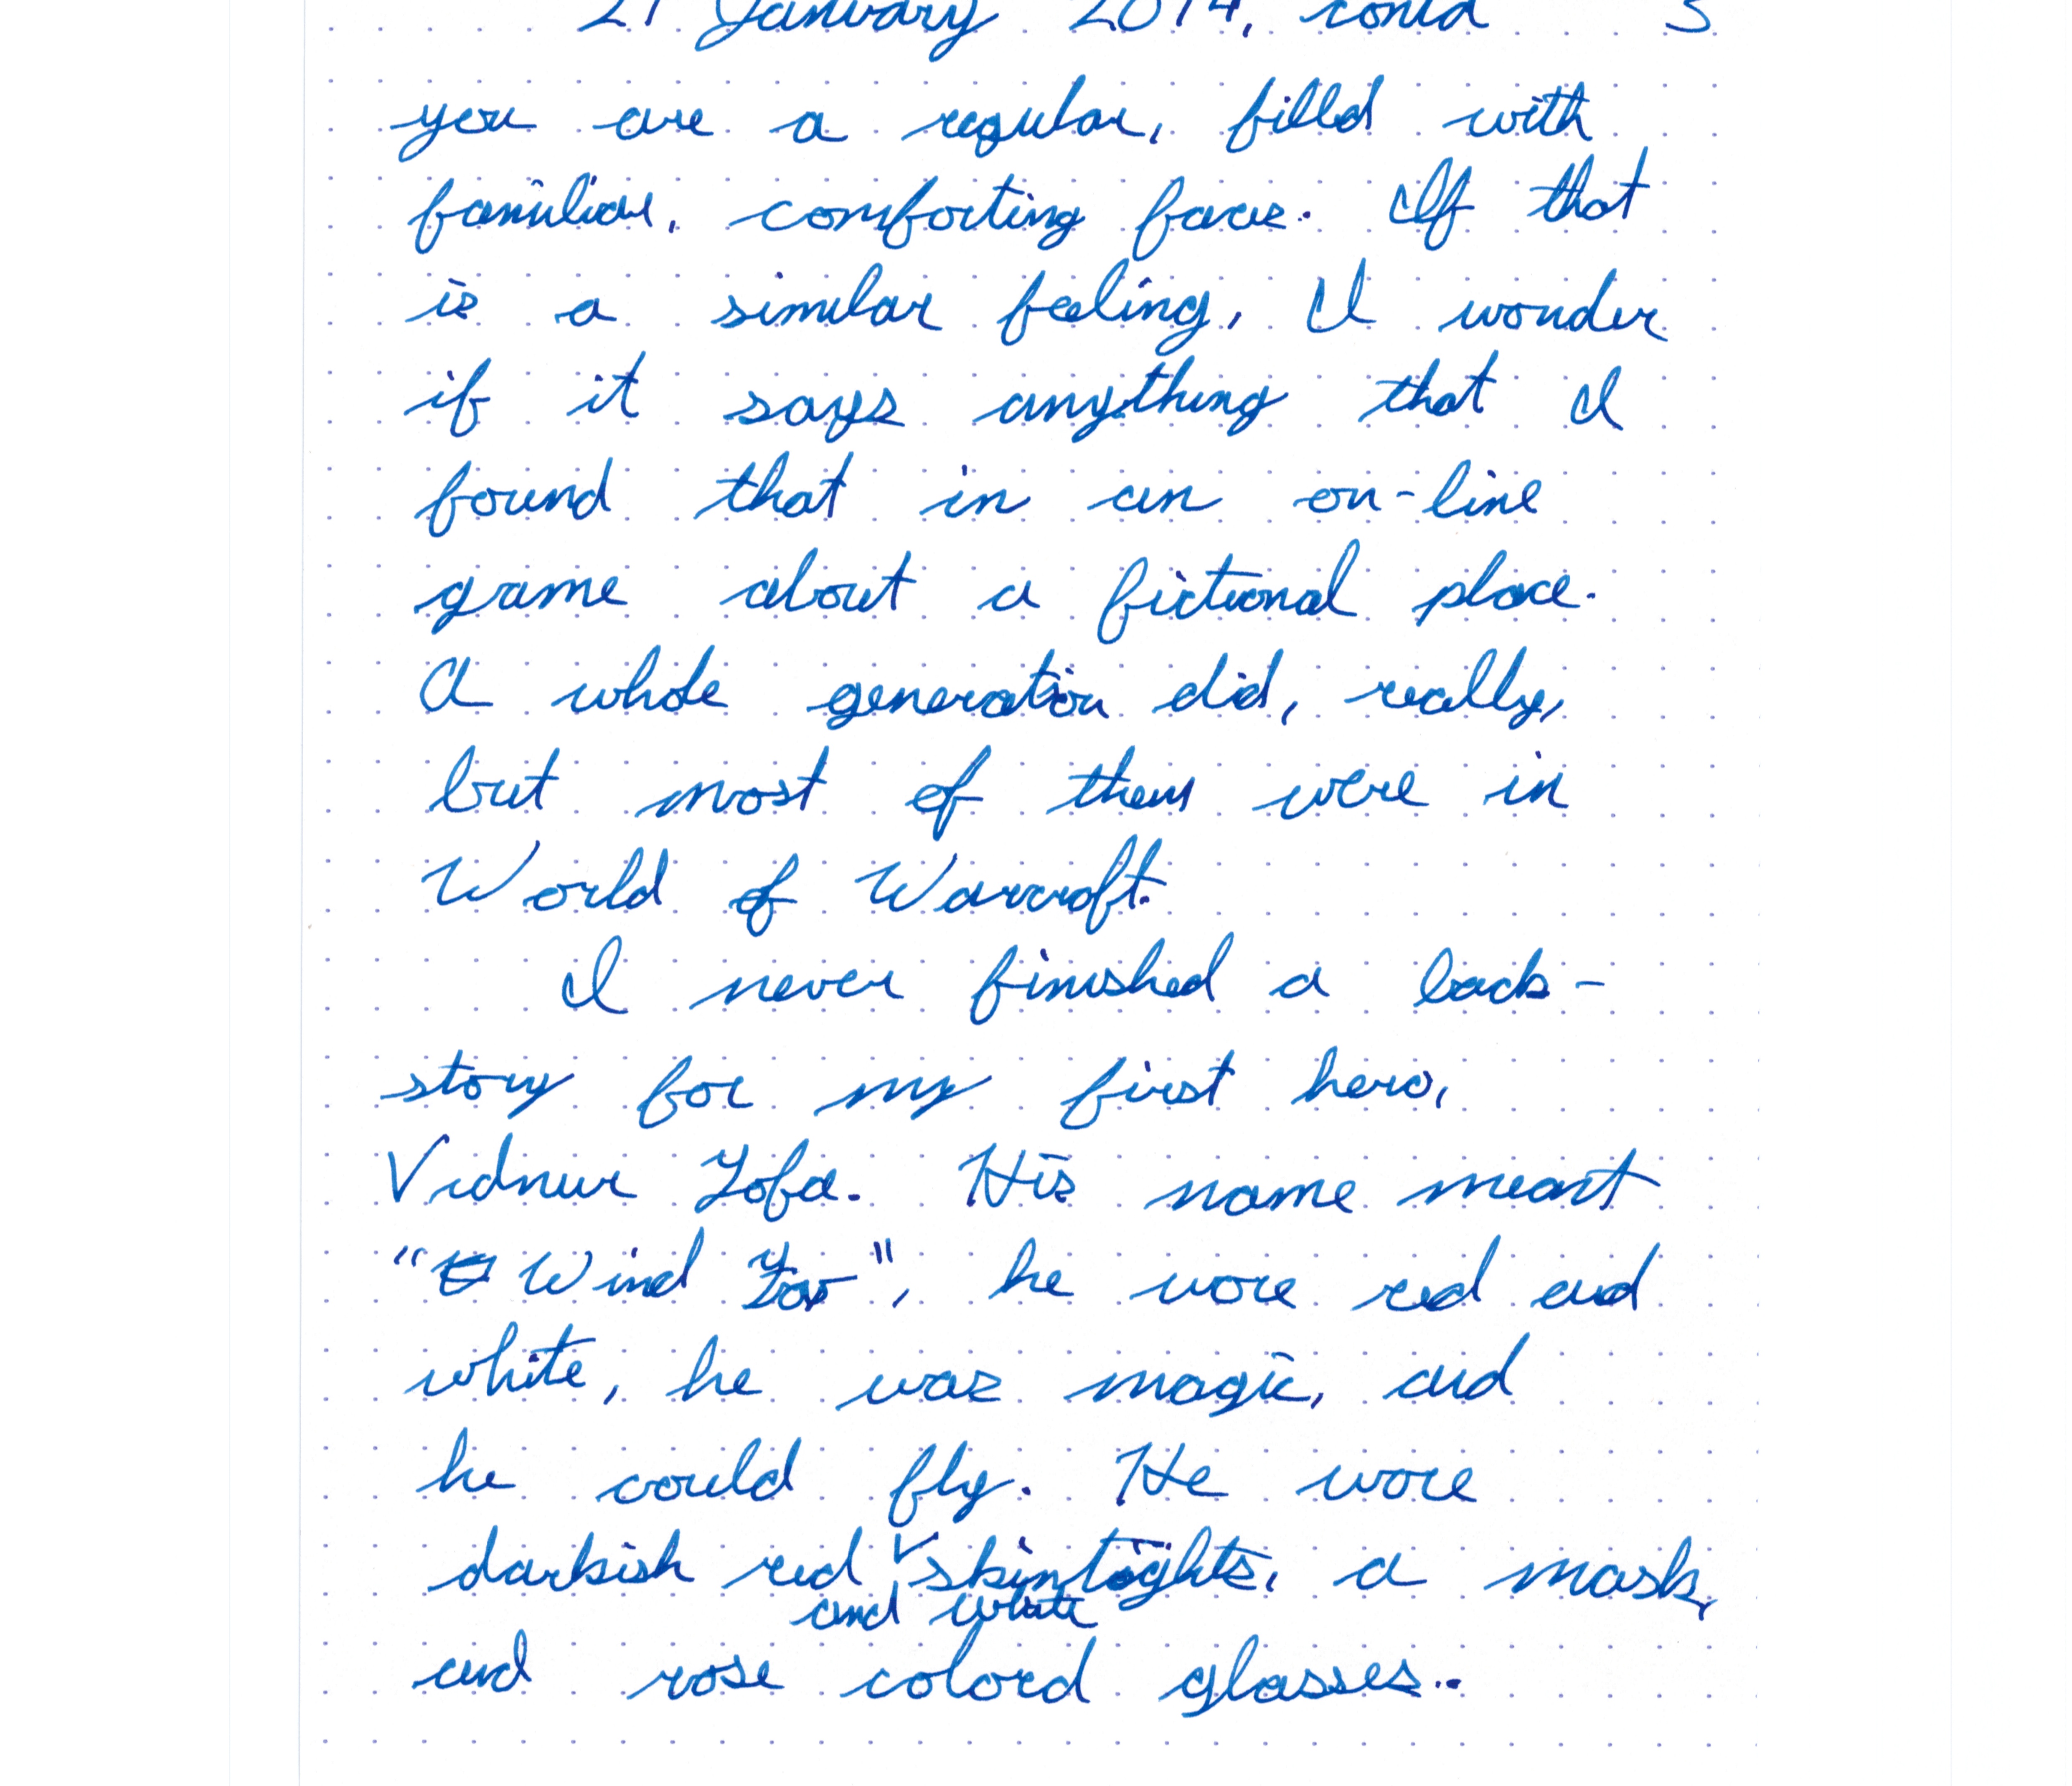 21 January 2014, contd 3
you are a regular, filled with
familiar, comforting faces. If that
is a similar feeling, I wonder
if it says anything that I
found that in an on-line
game about a fictional place.
A whole generation did, really,
but most of them were in
World of Warcraft.
I never finished a back-
story for my first hero,
Vidnur Zofa. His name meant
"Wind Zov", he wore red and
white, he was magic, and
he could fly. He wore
darkish red skintights, a mask,
and white
and rose colord glasses..